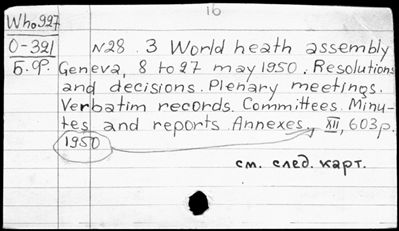 16
Who927
0-321
б.ф.
N28. 3 World heath assembly
Geneva, 8 to 27 may 1950. Resolutions
and decisions. Plenary meetings.
Verbatim records. Committees. Minu-
tes and reports. Annexes., XII, 603p.
1950
см. след. карт.